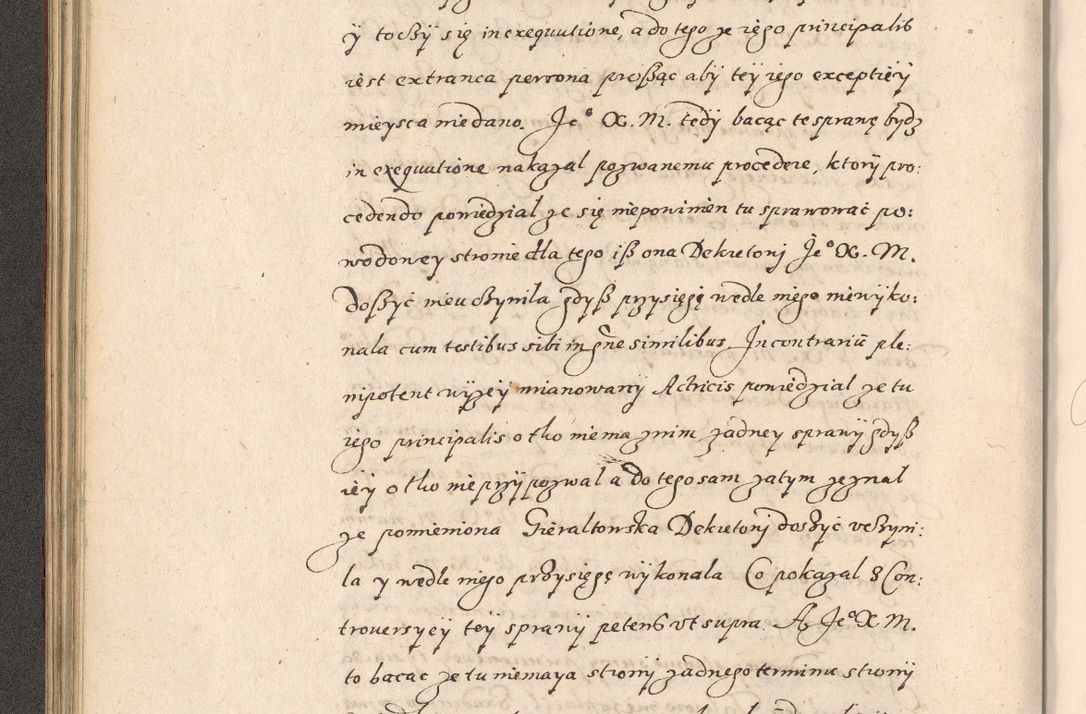 ÿ toczÿ się in exequutione, a do tego że iego principalis
iest extranea persona prosząc abÿ teÿ iego exceptieÿ
mieÿsca nie dano. Jeº X. M. tedÿ bacąc te sprawę bÿdź
in exequutione nakazał pozwanemu procedere, ktorÿ pro:
cedendo powiedział że się niepowinien tu sprawować po:
wodoweÿ stronie dla tego isz ona Dekretonj Jeº X. M.
dosyć nieuczyniła gdysz przysięgę wedle niego niewÿko:
nała cum testibus sibi in gñe similibus. In contrariũ ple:
nipotent wÿżeÿ mianowanÿ Actricis powiedział że tu
iego principalis o tho niema znim żadney sprawÿ gdÿsz
ieÿ o tho nie przÿpozwał a do tego sam zatym zeznał
że pomieniona Gieraltowska Dekretonj doszyć vczyni:
ła y wedle niego przysięgę wykonała Co pokazał z Con:
troversyeÿ teÿ sprawÿ petens vt supra. A Jeº X M.
to bacąc że tu niemaya stronÿ żadnego terminu stronÿ